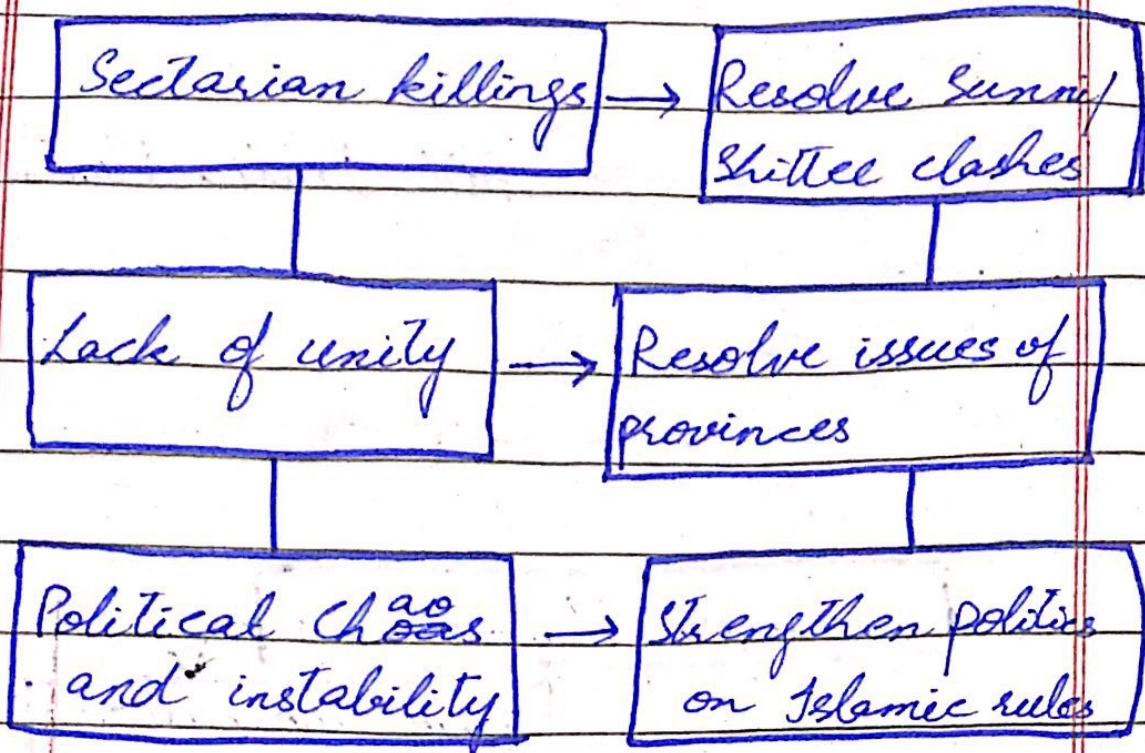 Sectarian killings → Resolve Sunni/
Shittee clashes
Lack of unity → Resolve issues of
provinces
Political Chaos → Strengthen politics
and instability on Islamic rules